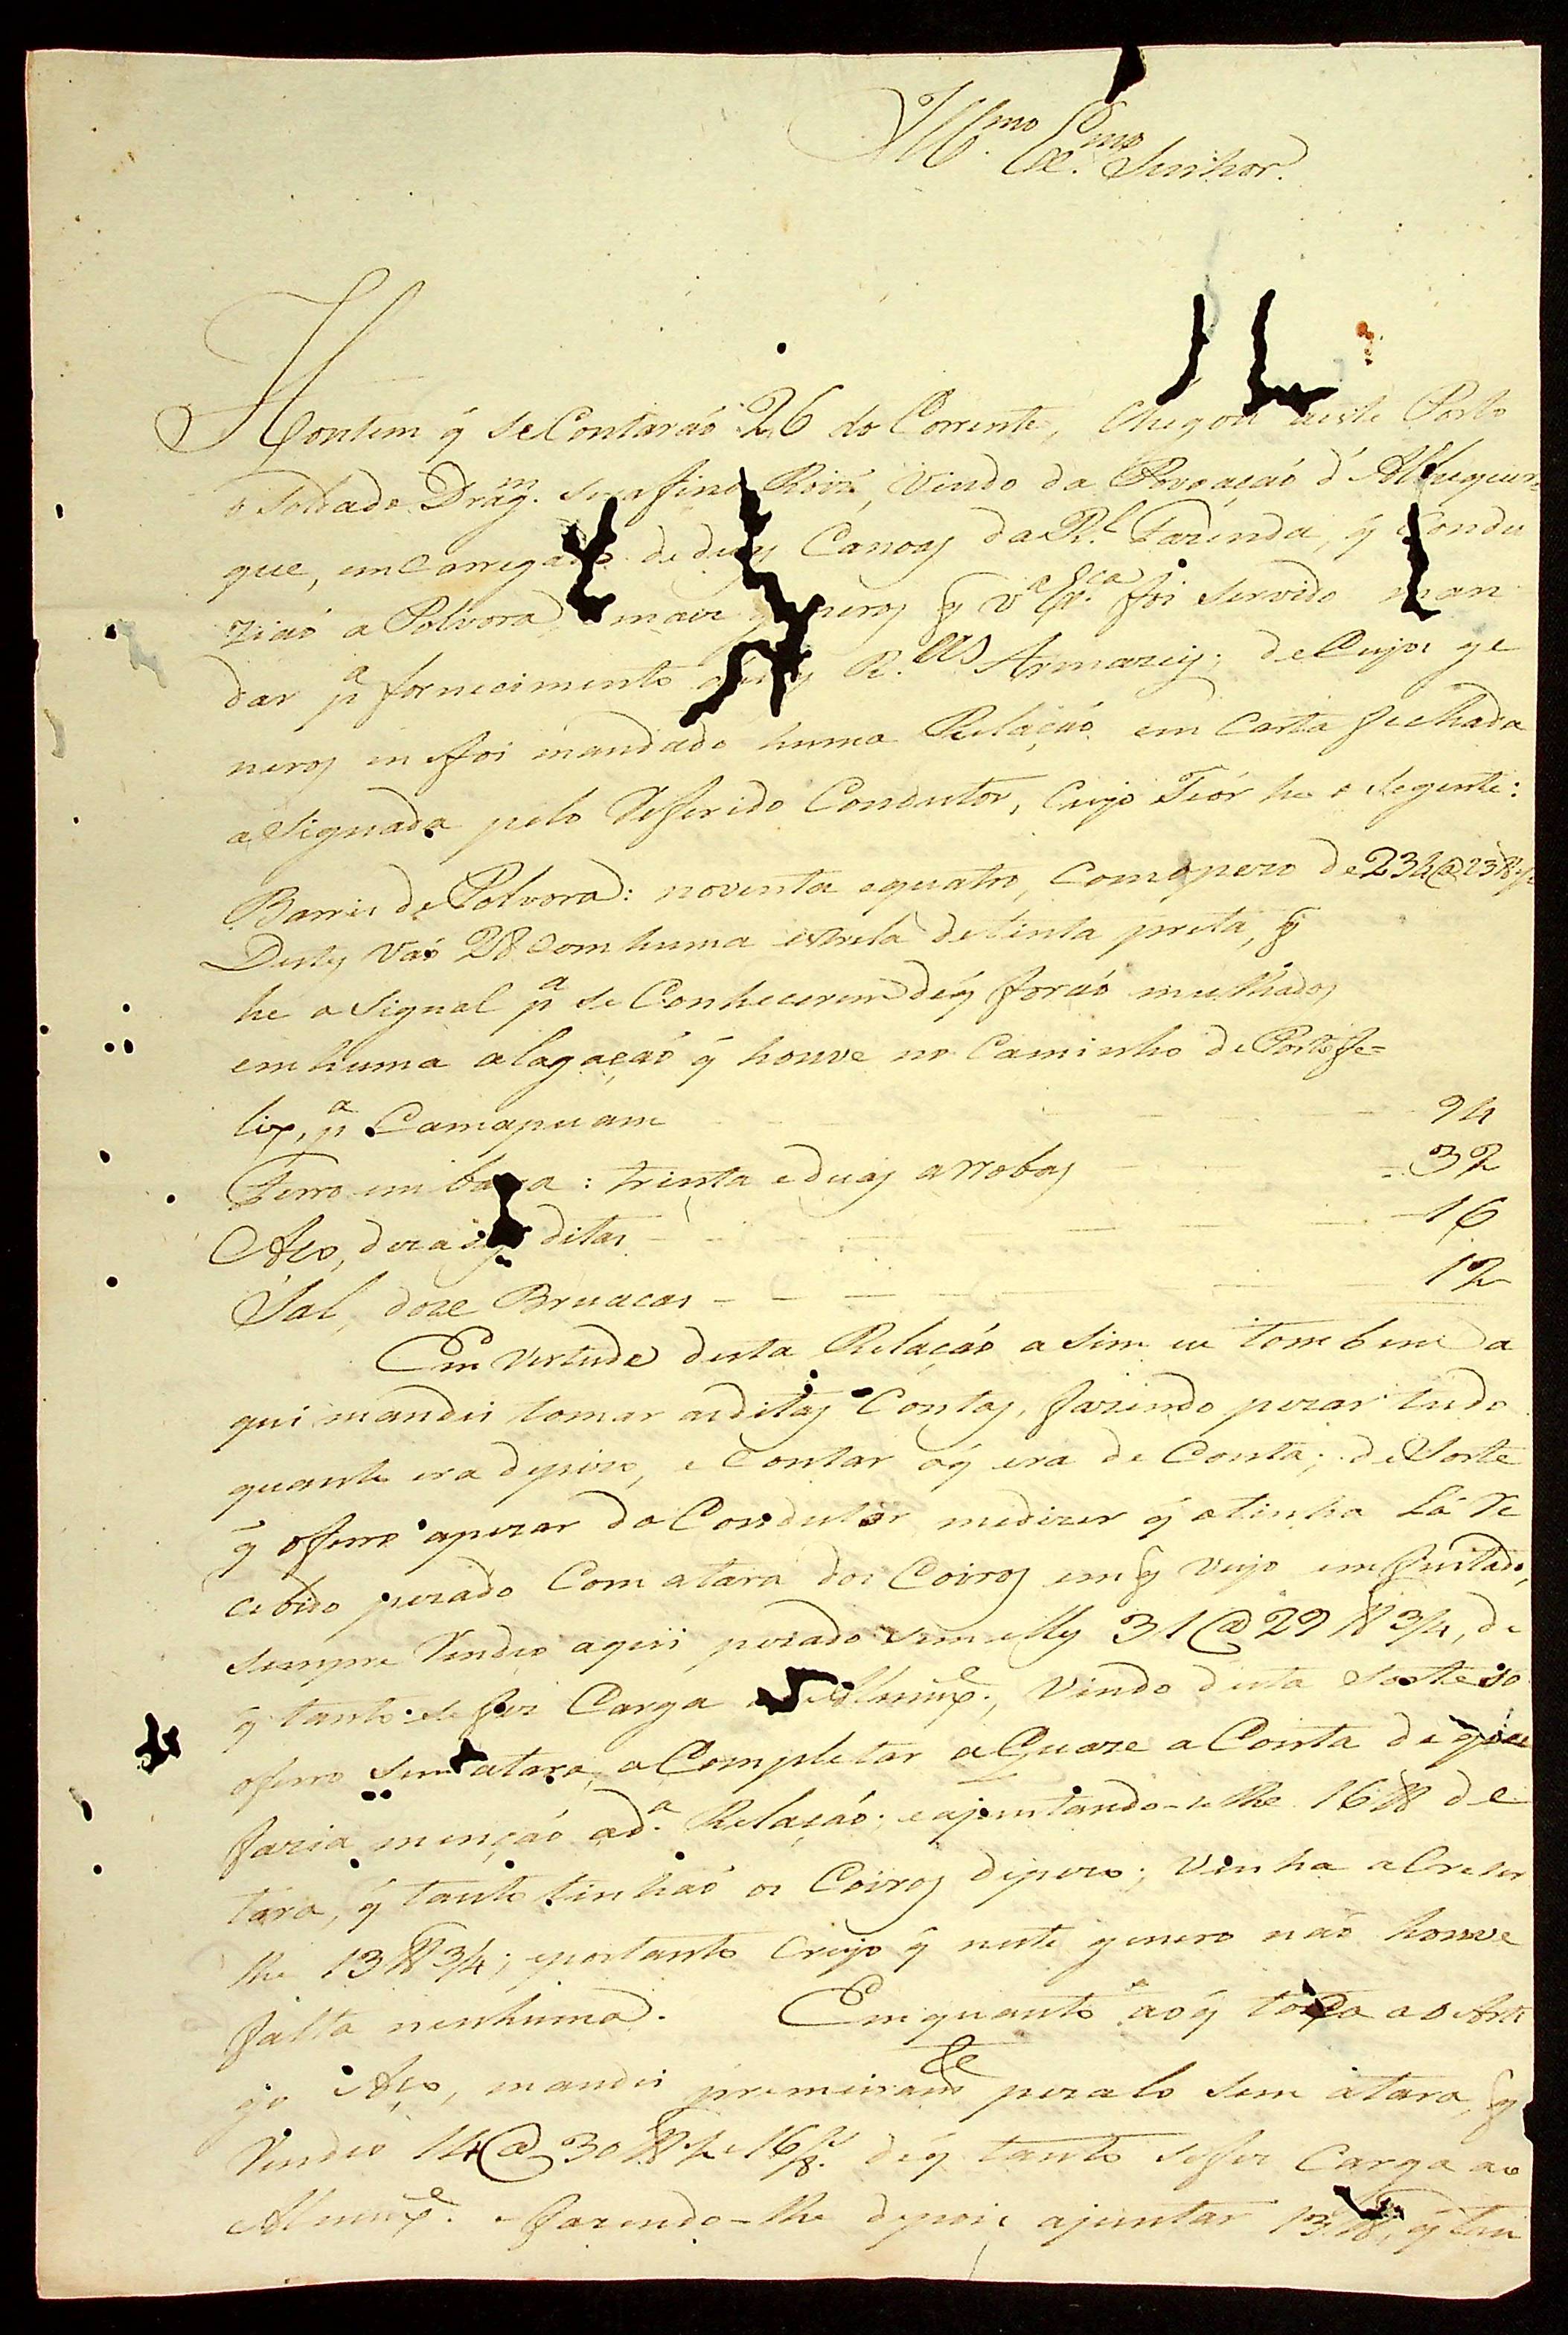 Ill.mo Ex.mo Senhor.
Hontem q̃ se Contaraõ 26 do Corrente, chegou a este Porto
o Soldado Drag.m Serafino Roiz, vindo da Povoaçaõ d'Albuquer=
que, emCarregado de duas Canoas da R.l Fazenda, q̃ Condu
ziaõ a Polvora, e mais generos q̃ V.a Ex.ca foi servido man
dar p.a fornecimento destes R.aes Armazeis; deCujos ge
neros me foi mandado huma Relaçaõ em Carta feichada
aSignada pelo Refferido Condutor, Cujo Teór he o Segente:
Barris de Polvora: noventa equatro, Comopezo de 234@23
Destes Vaõ 28 Com huma estrela detinta preta, q̃
he o Signal p.a se Conhecerem deq̃ foraõ mulhados
em huma alagaçaõ q̃ houve no Caminho de PortoFe=
lix, p.a Camapuam - - - 94
Ferro em barra: trinta eduas arrobas - - 32
Aço, dezaseis ditas - - - 16
Sal, doze Bruacas - - - 12
Em Vertude desta Relaçaõ aSim eu tombem a
qui mandei tomar asditas Contas, fazendo pezar tudo
quanto era depezo, e Contar oq̃ era de Conta; deSorte
q̃ oferro apezar do Condutor medizer q̃ otinha Lá re
cebido pezado Com atara dos Coiros em q̃ veyo emfeitado,
sempre Rendeo aqui pezado sem elles 31@29 ℔ 3/4, de
q̃ tanto se fez Carga ao Almux.e, Vindo desta Sorte so
oferro sem atara, aCompletar aQuaze a Conta de que
fazia mençaõ ad.a Relaçaõ; eajuntando-selhe 16 ℔ de
tára, q̃ tanto tinhaõ os Coiros depezo; vinha aCreser
lhe 13 ℔ 3/4; eportanto Creyo q̃ neste genero naõ houve
falta nenhuma. Emquanto aoq̃ toca ao Arti
go Aço, mandei premeiram.te pezalo sem atara, q̃
Rendeo 14@ 30 ℔ 1/2 e 16/8.s deq̃ tanto sefez Carga ao
Almux.e. e fazendo-lhe depois ajuntar 13 ℔, q̃ tan